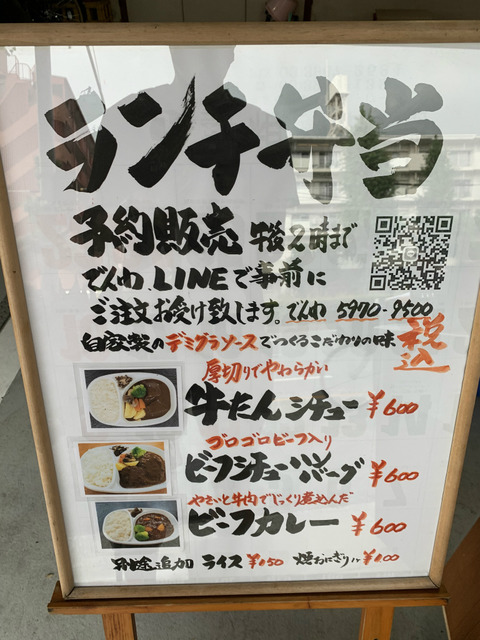 ランチ弁当
予約販売 午後2時まで
でんわ、LINEで事前に
ご注文お受け致します。でんわ 5970-9500
自家製のデミグラソースでつくるこだわりの味 税込
厚切りでやわらかい
牛たんシチュー ¥600
ゴロゴロビーフ入り
ビーフシチューハンバーグ ¥600
やさいと牛肉でじっくり煮込んだ
ビーフカレー ¥600
別途追加 ライス ¥150 焼おにぎり ¥100